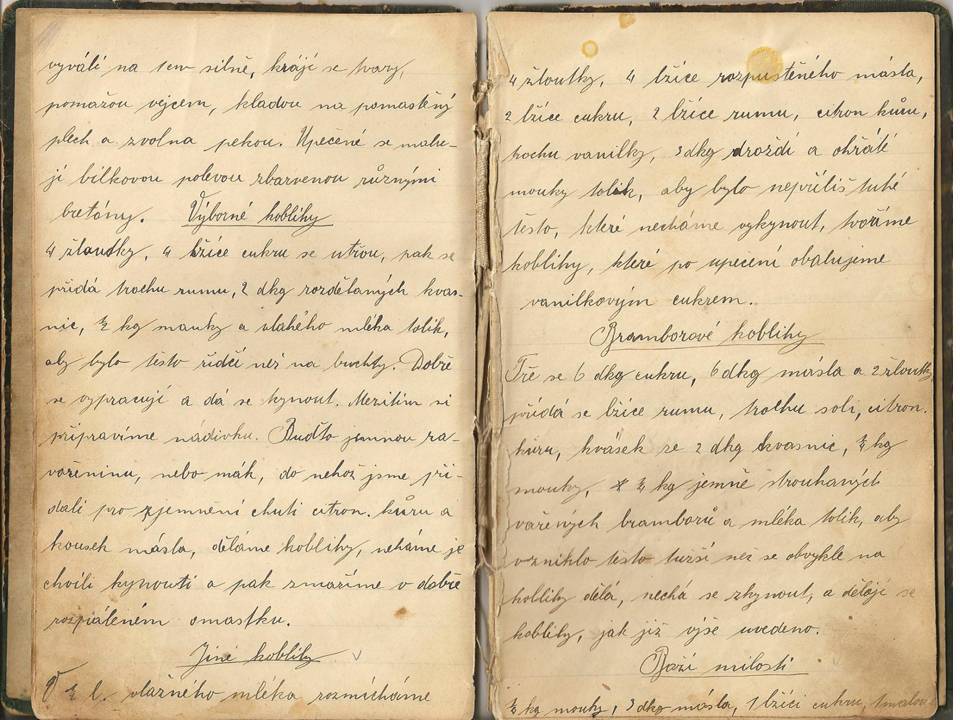 vyválí na 1cm silně, krájí se tvary,
pomažou vejcem, kladou na pomaštěný
plech a zvolna pekou. Upečené se malu-
jí bílkovou polevou zbarvenou různými
bretóny. Výborné koblihy
4 žloudky, 4 lžíce cukru se utřou, pak se
přidá trochu rumu, 2 dkg rozdělaných kvas-
nic, ½ kg mouky a vlahého mléka tolik,
aby bylo těsto řidčí než na buchty. Dobře
se vypracují a dá se kynout. Mezitím si
připravíme nádivku. Buďto jemnou za-
vařeninu, nebo mák, do nehož jsme při-
dali pro zjemnění chuti citron. kůru a
kousek másla, děláme koblihy, neháme je
chvíli kynouti a pak smažíme v dobře
rozpáleném omastku.
Jiné koblihy
V ½ l. vlažného mléka rozmícháme
4 žloutky, 4 lžíce rozpuštěného másla,
2 lžíce cukru, 2 lžíce rumu, citron kůru,
trochu vanilky, 3 dkg droždí a ohřáté
mouky tolik, aby bylo nepříliš tuhé
těsto, které necháme vykynout, tvoříme
koblihy, které po upečení obalujeme
vanilkovým cukrem.
Bramborové koblihy
Tře se 6 dkg cukru, 6 dkg másla a 2 žloutky,
přidá se lžíce rumu, trochu soli, citron.
kůru, kvásek ze 2 dkg kvasnic, ½ kg
mouky, ½ kg jemně strouhaných
vařených bramborů a mléka tolik, aby
vzniklo těsto tužší než se obvykle na
koblihy dělá, nechá se zkynout, a dělají se
koblihy, jak již výše uvedeno.
Boží milosti
½ kg mouky, 3 dkg másla, 1 lžíci cukru,